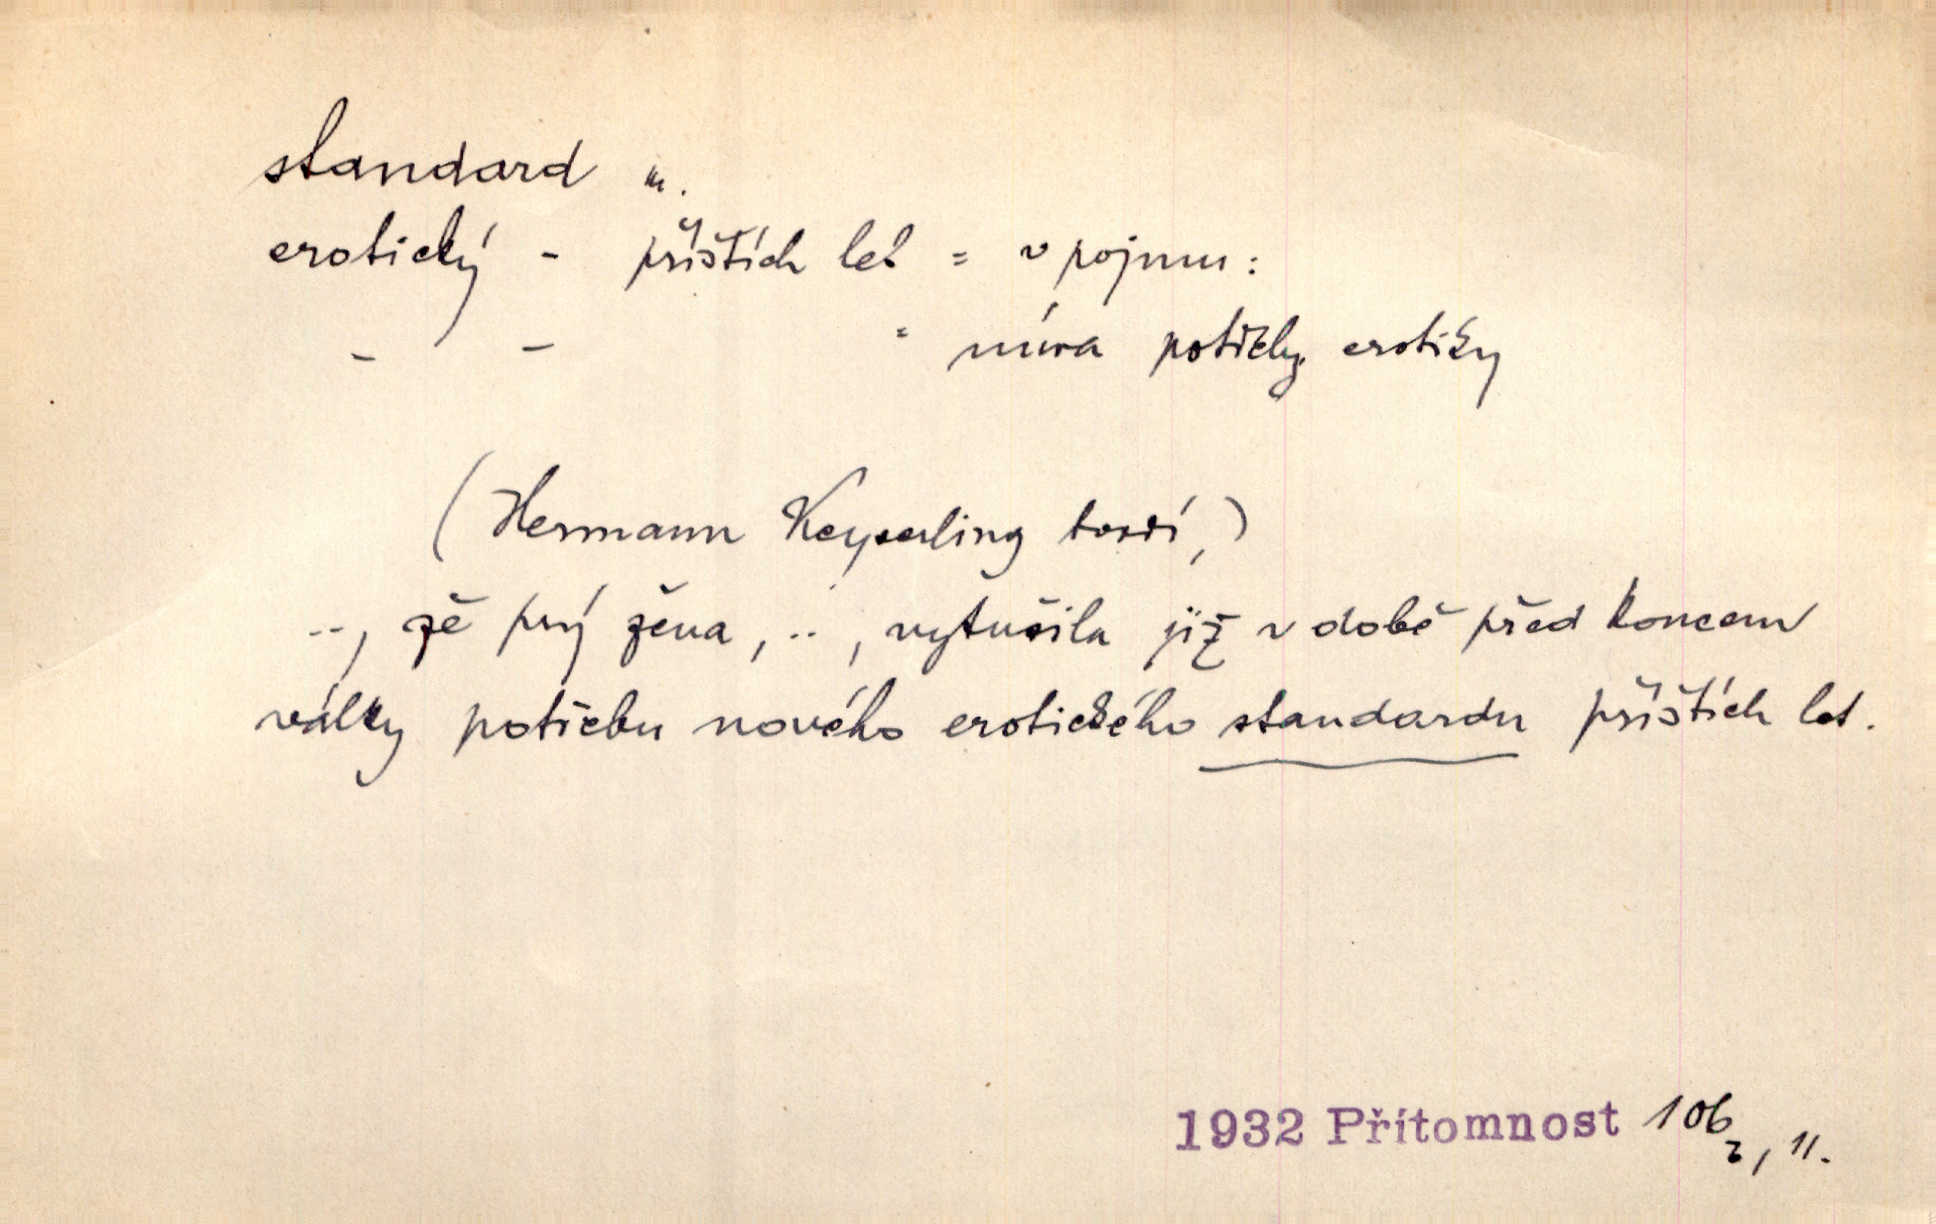 standard m.
erotický - příštích let = v pojmu:
- - = míra potřeby erotiky
(Hermann Keyserling tvrdí,)
.., že prý žena, .., vytušila již v době před koncem
války potřebu nového erotického standardu příštích let.
1932 Přítomnost 106
2, 11.